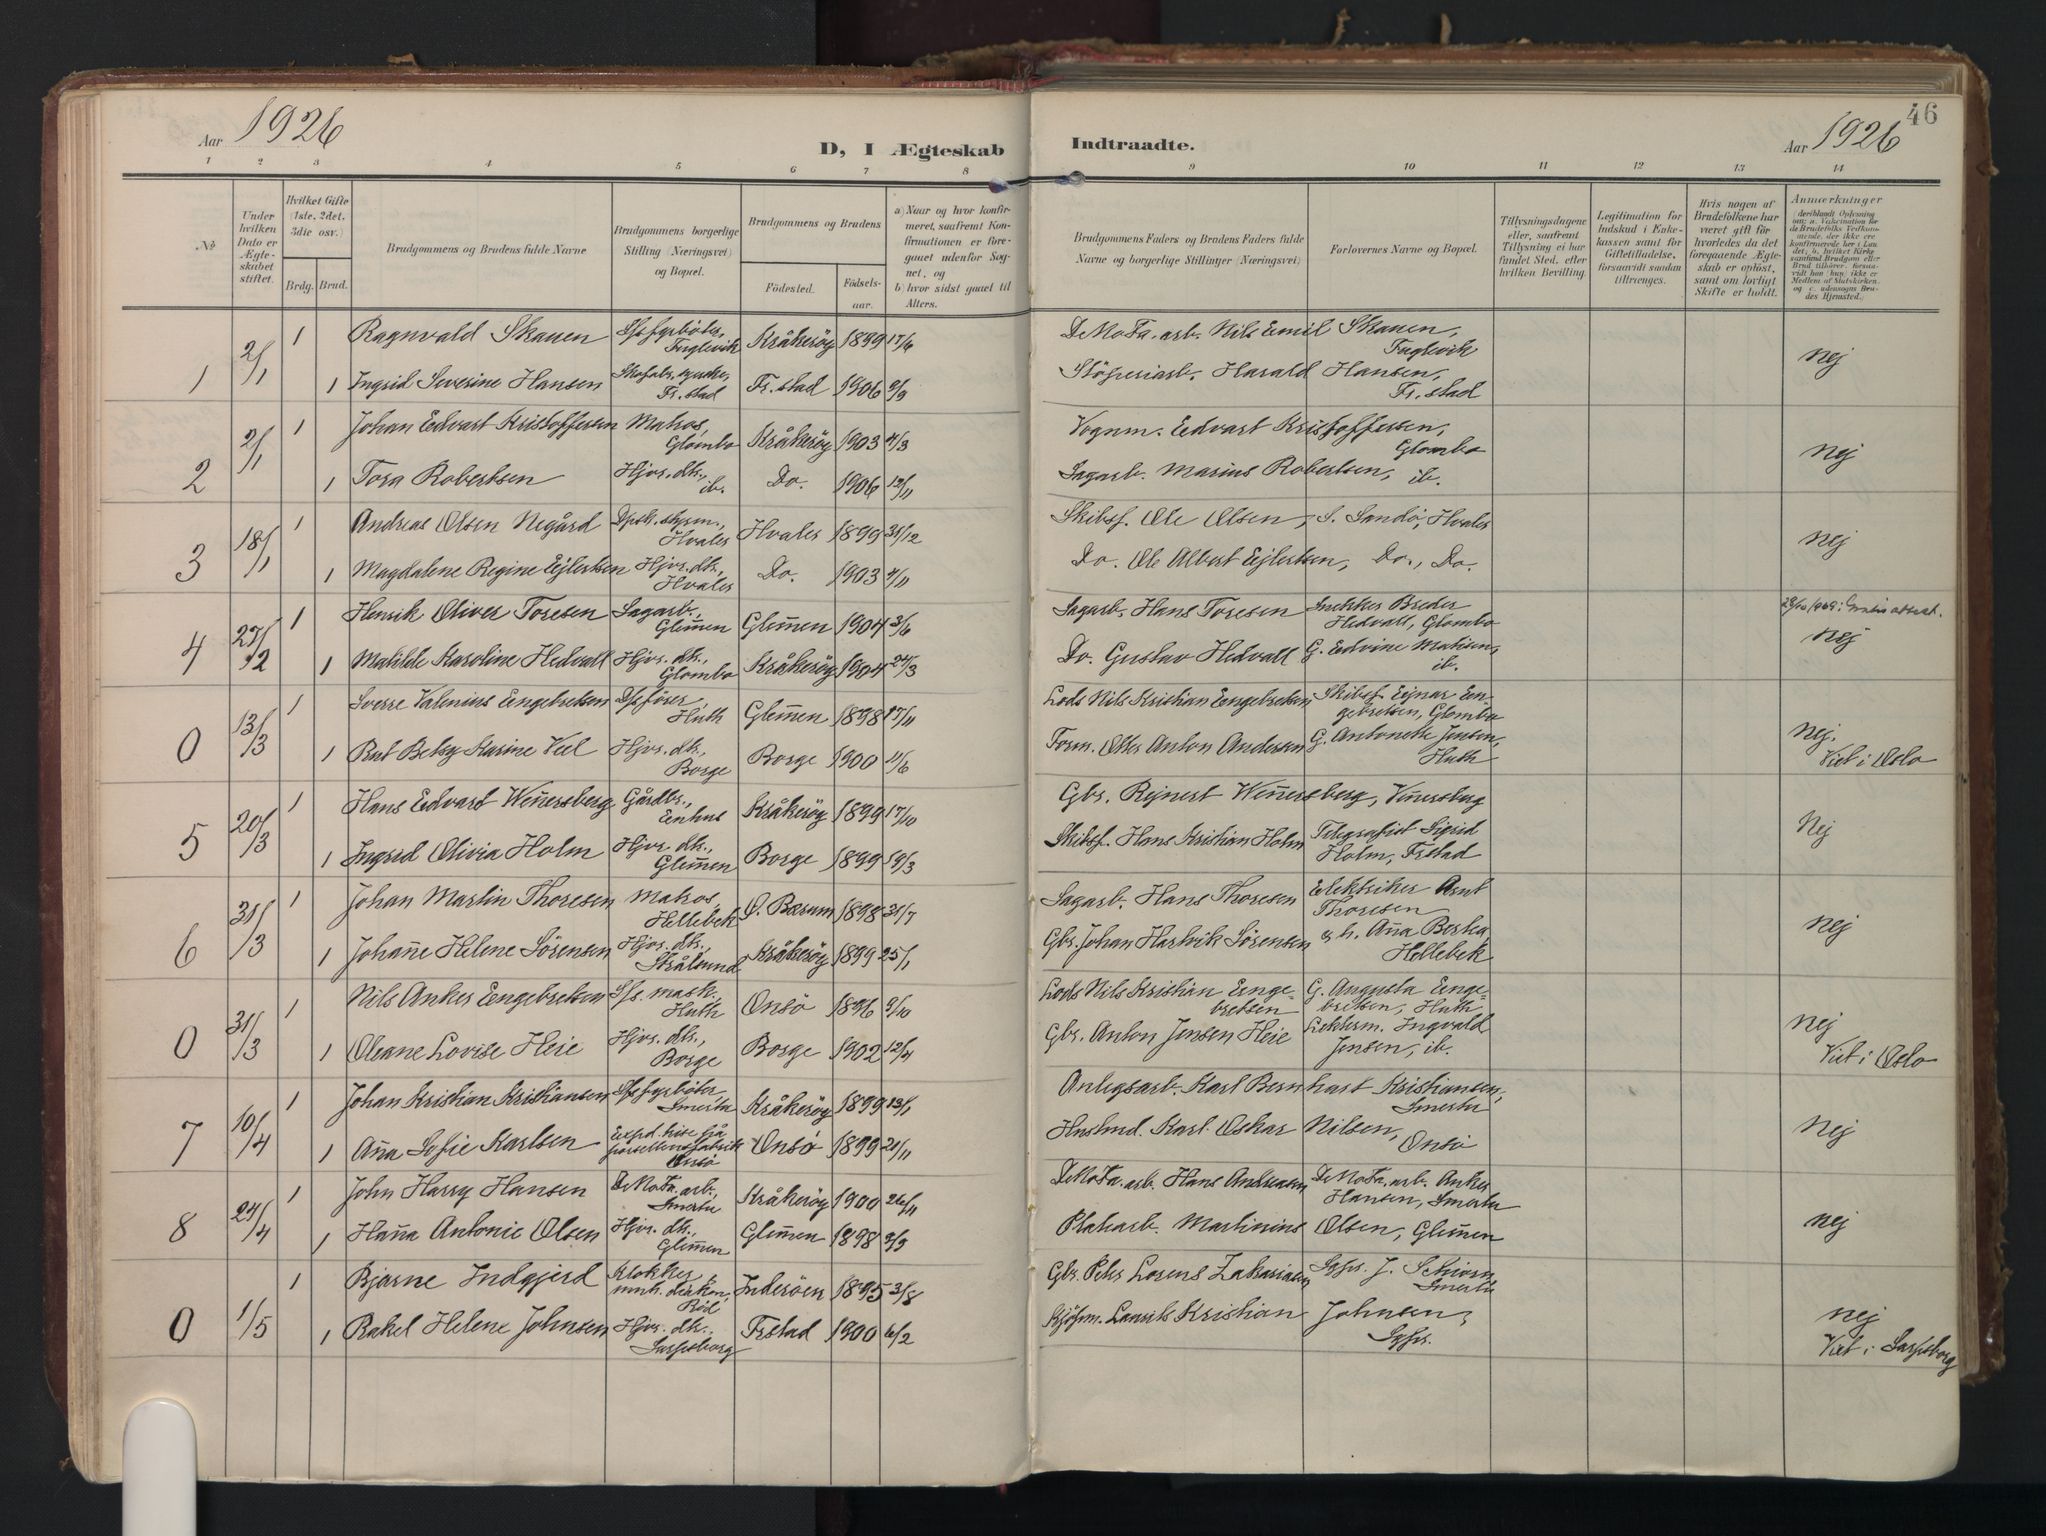 Aar 1926
D, I Ægteskab
Indtraadte.
Aar 1926
46
1 2 3 4 5 6 7 8 9 10 11 12 13 14
No
Under hvilken Dato er Ægteskabet stiftet.
Hvilket Gifte (1ste, 2det, 3die osv.)
Brdg. Brud.
Brudgommens og Brudens fulde Navne
Brudgommens borgerlige Stilling (Næringsvei) og Bopæl.
Brudgommens og Brudens
Födested.
Födselsaar.
a) Naar og hvor konfirmeret, saafremt Konfirmationen er foregaaet udenfor Sognet, og
b) hvor sidst gaaet til Alters.
Brudgommens Faders og Brudens Faders fulde Navne og borgerlige Stillinger (Næringsvei)
Forlovernes Navne og Bopæl.
Tillysningsdagene eller, saafremt Tillysning ei har fundet Sted, efter hvilken Bevilling.
Legitimation for Indskud i Enkekassen samt for Giftetilladelse, forsaavidt saadan tiltrænges.
Hvis nogen af Brudefolkene har været gift før hvorledes da det foregaaende Ægteskab er opløst, samt om lovligt Skifte er holdt.
Anmærkninger
deriblandt Oplysning om: a. Vaccination for de Brudefolks Vedkommende, der ikke ere konfirmerede her i Landet, b. hvilket Kirkesamfund Brudgom eller Brud tilhører, forsaavidt han (hun) ikke er Medlem af Statskirken, og c. udensogns Brudes Hjemsted.
1 2/1 1 Ragnvald Skauen Sfs.fyrböter, Fuglevik Kråkeröy 1899 17/6 DeNoFa. arb. Nils Emil Skauen, Fuglevik nej
1 Ingrid Severine Hansen Fr.stad Fr.stad 1906 9/9 Stöperiarb. Harald Hansen, Fr.stad
2 2/1 1 Johan Edvart Kristoffersen Matros, Glombo Kråkeröy 1903 4/3 Vognm. Edvart Kristoffersen, Glombo nej
1 Tora Robertsen Hjvr. dtr., ib. Do. 1906 12/11 Sagarb. Marius Robertsen, ib.
3 18/1 1 Andreas Olsen Negård Dpsk. styrm., Hvaler Hvaler 1899 31/12 Skibsf. Ole Olsen, S. Sandö, Hvaler nej
1 Magdalene Regine Ejlertsen Hjvr. dtr., Hvaler Do. 1903 4/11 Do. Ole Albert Ejlertsen, Do., Do.
4 27/2 1 Henrik Oliver Toresen Sagarb., Glem̄en Glem̄en 1904 3/6 Sagarb. Hans Toresen Snekker Breder Hedvall, Glombo nej
1 Matilde Karoline Hedvall Hjvr. dtr., Glombo Kråkeröy 1904 24/3 Do. Gustav Hedvall G. Edvine Matisen, ib.
0 13/3 1 Sverre Valenius Engebretsen Huth Glem̄en 1898 17/11 Lods Nils Kristian Engebretsen Skibsf. Ejnar Engebretsen, Glombo nej.
1 Rut Betsy Karine Viel Hjvr. dtr., Borge Borge 1900 11/6 Form. Otto Anton Andersen G. Antonette Jensen, Huth Viet i Oslo
5 20/3 1 Hans Edvart Wen̄ersberg Gårdbr., Enhus Kråkeröy 1899 17/10 Gbr. Rejnert Wen̄ersberg, Ven̄ersberg Nej
1 Ingrid Olivia Holm Hjvr. dtr., Glem̄en Borge 1899 19/3 Skibsf. Hans Kristian Holm Telegrafist Sigrid Holm, Frstad
6 31/3 1 Johan Martin Thoresen Matros, Hellebek Ö. Bærum 1898 31/7 Sagarb. Hans Thoresen Elektriker Arnt Thoresen nej
1 Johan̄e Helene Sörensen Hjvr. dtr., Strålsund Kråkeröy 1899 25/1 Gbr. Johan Hartvik Sörensen og h. An̄a Berta, Hellebek
0 31/3 1 Nils Anker Engebretsen Sfs. mask., Huth Onsö 1896 9/10 Lods Nils Kristian Engebretsen G. Augusta Engebretsen, Huth nej
1 Oleane Lovise Heie Hjvr. dtr., Borge Borge 1902 12/4 Gbr. Anton Jensen Heie Lekterm. Ingvald Jensen, ib. Viet i Oslo
7 10/4 1 Johan Kristian Kristiansen Sfs.fyrböter, Smertu Kråkeröy 1899 13/1 Anlegsarb. Karl Bernhart Kristiansen, Smertu nej
1 An̄a Sofie Karlsen Expd. trise på porsellensfabrik Onsö Onsö 1899 21/11 Husmd. Karl Oskar Nilsen, Onsö
8 24/4 1 John Harry Hansen DeNoFa. arb., Smertu Kråkeröy 1900 26/11 DeNoFa. arb. Hans Andreasen DeNoFa. arb. Anker Hansen, Smertu nej
1 Han̄a Antonie Olsen Hjvr. dtr., Glem̄en Glem̄en 1898 3/9 Platarb. Martinius Olsen, Glem̄en
0 1/5 1 Bjarne Indgjerd Klokker, mnk. diakon, Röd Inderöen 1895 3/8 Gbr. Peter Lorens Zakariasen Sgpr. J. Schiörn Smertu nej
1 Rakel Helene Johnsen Hjvr. dtr., Sarpsborg Frstad 1900 6/2 Kjöpm. Laurits Kristian Johnsen, Sgpr. Viet i Sarpsborg